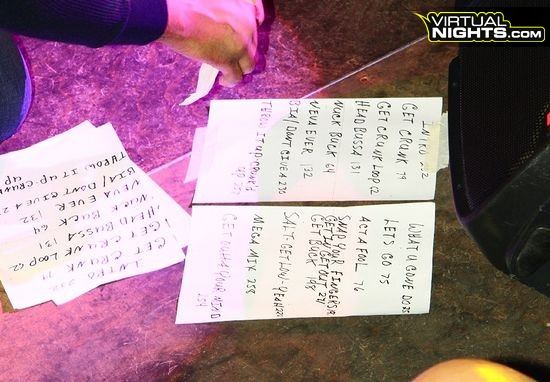 VIRTUAL
NIGHTS.COM
INTRO 232
GET CRUNK 79
GET CRUNK LOOP 62
HEAD BUSSA 131
NUCK BUCK 64
NEVA EVER 132
BIA/DONT GIVE A 230
THROW IT UP CRUNK
UP
WHAT U GONE DO 35
LETS GO 75
ACT A FOOL 76
SNAP YOUR FINGERS
GET BUCK 148
SALT-GET LOW-YEAH
MEGA MIX 238
GET OUTTA YOUR MIND
234
INTRO 232
GET CRUNK
GET CRUNK LOOP 62
HEAD BUSSA 131
NUCK BUCK 64
NEVA EVER 132
BIA/DONT GIVE A
THROW IT UP CRUNK
UP